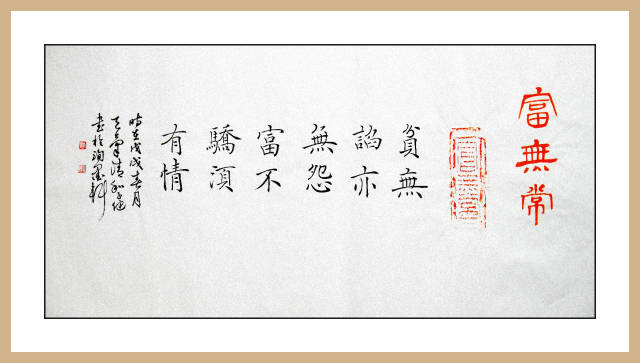 富無常
貧無
諂亦
無怨
富不
驕湏
有情
時在戊戌春月
書於墨軒